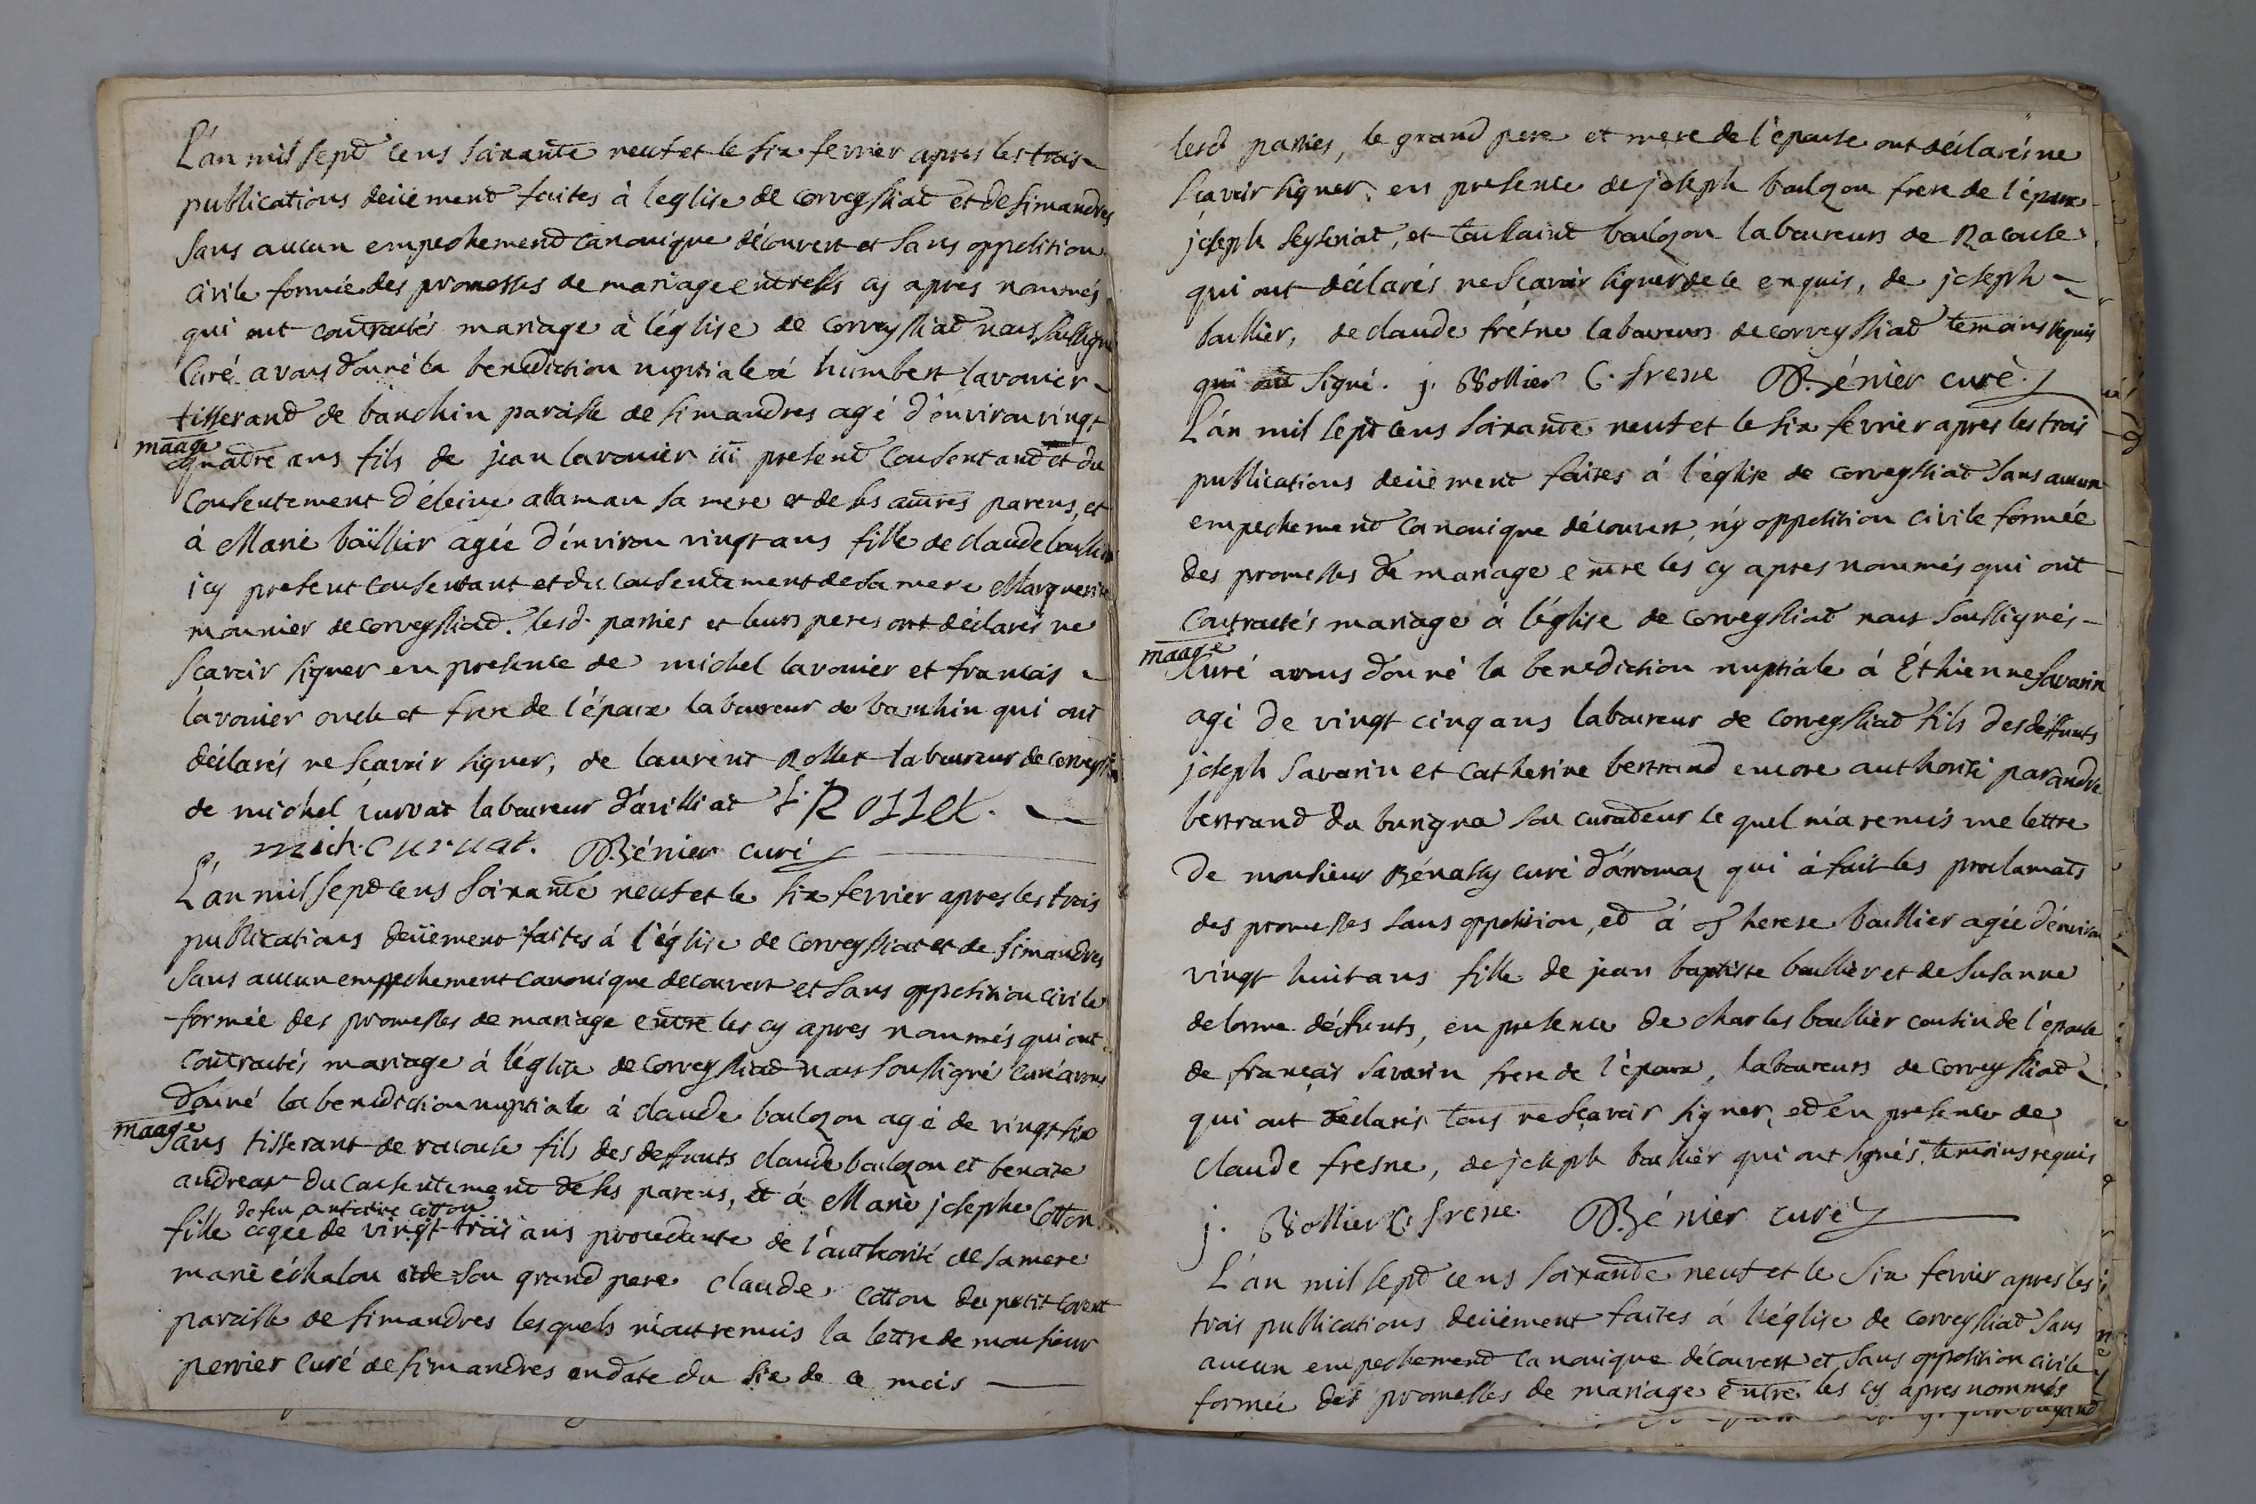 L'an mil sept cens soixante neuf et le six fevrier apres les trois
publications deüement faites à leglise de corveyssiat et de simandres
sans aucun empechement canonique découvert et sans oppolition
civile formée des promesses de mariage entre les cy apres nommés
qui ont contractés mariage à léglise de corveyssiat nous soussigné
Curé avons donné la benediction nuptiale à humbert lavonier
tisserand de banchin paroisse de simandres agé d'environ vingt
maage
quatre ans fils de jean lavonier ici present consentant et du
consentement d'éleine allaman sa mere et de ses autres parens, et
à Marie boüllier agée d'environ vingt ans fille de claude boullier
icy present consentant et du consentement de sa mere Marguerite
mounier de corveyssiat. lesd. parties et leurs peres ont déclarés ne
scavoir signer en presence de michel lavonier et francois
lavonier oncle et frere de l'époux laboureur de banchin qui ont
déclarés ne scavoir signer, de laurent Rollet laboureur de corveyssia
de michel curvat laboureur d'arilliat L. Rollet.
mich. curvat. Bénier curé
L'an mil sept cens soixante neuf et le six fevrier apres les trois
publications deüement faites á l'église de corveyssiat et de simandres
sans aucun emppchement canonique decouvert et sans oppolition civile
formée des promesses de mariage entre les cy apres nommés qui ont
contractés mariage á léglise de corveyssiat nous soussigné curé avons
donné la benediction nuptiale à claude boulzon agé de vingt six
maage
ans tisserant de racouse fils des deffunts claude boulzon et benoite
andreat du consentement de ses parens, et á Marie josephe Cotton
de feu antoine cotton
fille agée de vingt-trois ans procedante de l'authorité de sa mere
marie échalou et de son grand pere claude cotton du petit corent
paroisse de simandres lesquels m'ont remis la lettre de monsieur
perrier curé de simandres en date du six de ce mois
lesd parties, le grand pere et mere de l'épouse ont déclarés ne
scavoir signer, en presence de joseph boulzon frere de l'époux
joseph seyseriat, et toussaint boulzon laboureurs de Racouse
qui ont déclarés ne scavoir signer de ce enquis, de joseph
boullier, de claude frésne laboureurs de corveyssiat temoins requis
qui ont signé. j. Bollier C. frene Bénier curé
L'án mil sept cens soixante neuf et le six fevrier apres les trois
publications deüement faites á l'église de corveyssiat sans aucun
empechement canonique découvert, n'y oppolition civile formée
des promesses de mariage entre les cy apres nommés qui ont
contractés mariage á léglise de corveyssiat nous soussignés
maage
Curé avons donné la benediction nuptiale á Éthienne Savarin
agé de vingt cinq ans laboureur de corveyssiat fils des déffunts
joseph savarin et catherine bertrand encore authorisé par andré
bertrand du burigna son curateur le quel m'a remis une lettre
de monsieur Bénassy curé d'áromas qui á fait les proclamats
des promesses sans oppolition, et á Therese boullier agée d'environ
vingt huit ans fille de jean baptiste boullier et de susanne
delorme défunts, en presence de charles boullier cousin de l'épouse
de françois savarin frere de l'époux, laboureurs de corveyssiat
qui ont déclarés tous ne scavoir signer, et en presence de
claude fresne, de joseph boullier qui ont signés, temoins requis
j. Bollier C. frene Bénier curé
L'an mil sept cens soixante neuf et le six fevrier apres les
trois publications deüement faites á l'église de corveyssiat sans
aucun empechement canonique découvert et sans opposition civile
formée des promesses de mariage entre les cy apres nommés